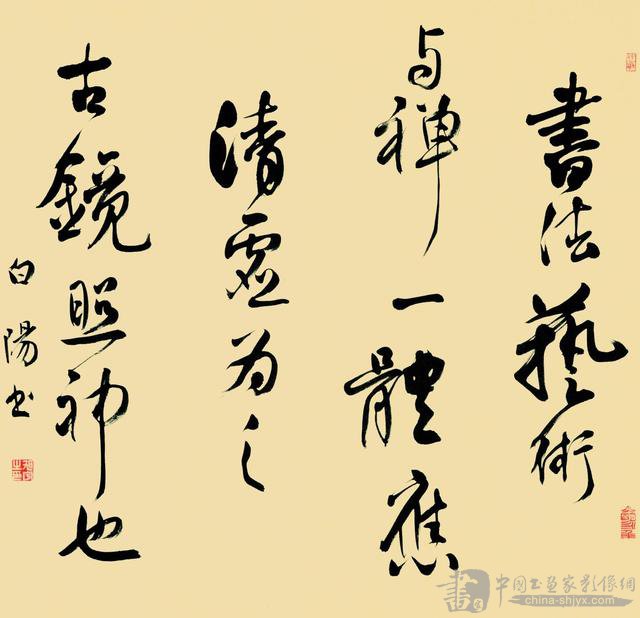 書法藝術
与禅一體應
清虚為之
古鏡照神也
白陽书
書 中國书画家影像網
china-shjyx.com